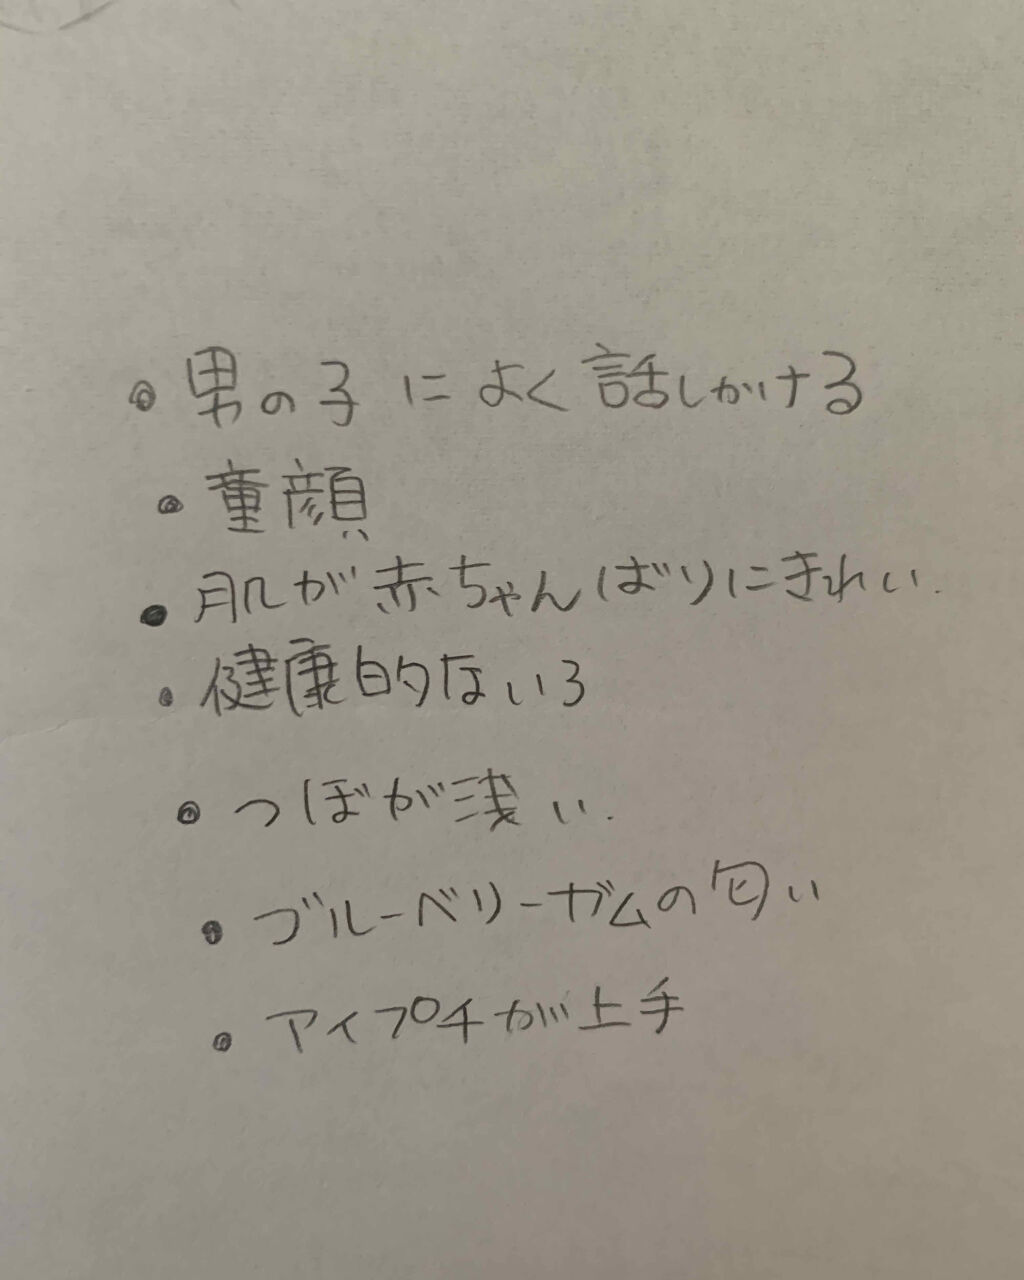 ・男の子によく話しかける
・童顔
・肌が赤ちゃんばりにきれい.
・健康的ないろ
・つぼが浅い.
・ブルーベリーガムの匂い
・アイプチが上手